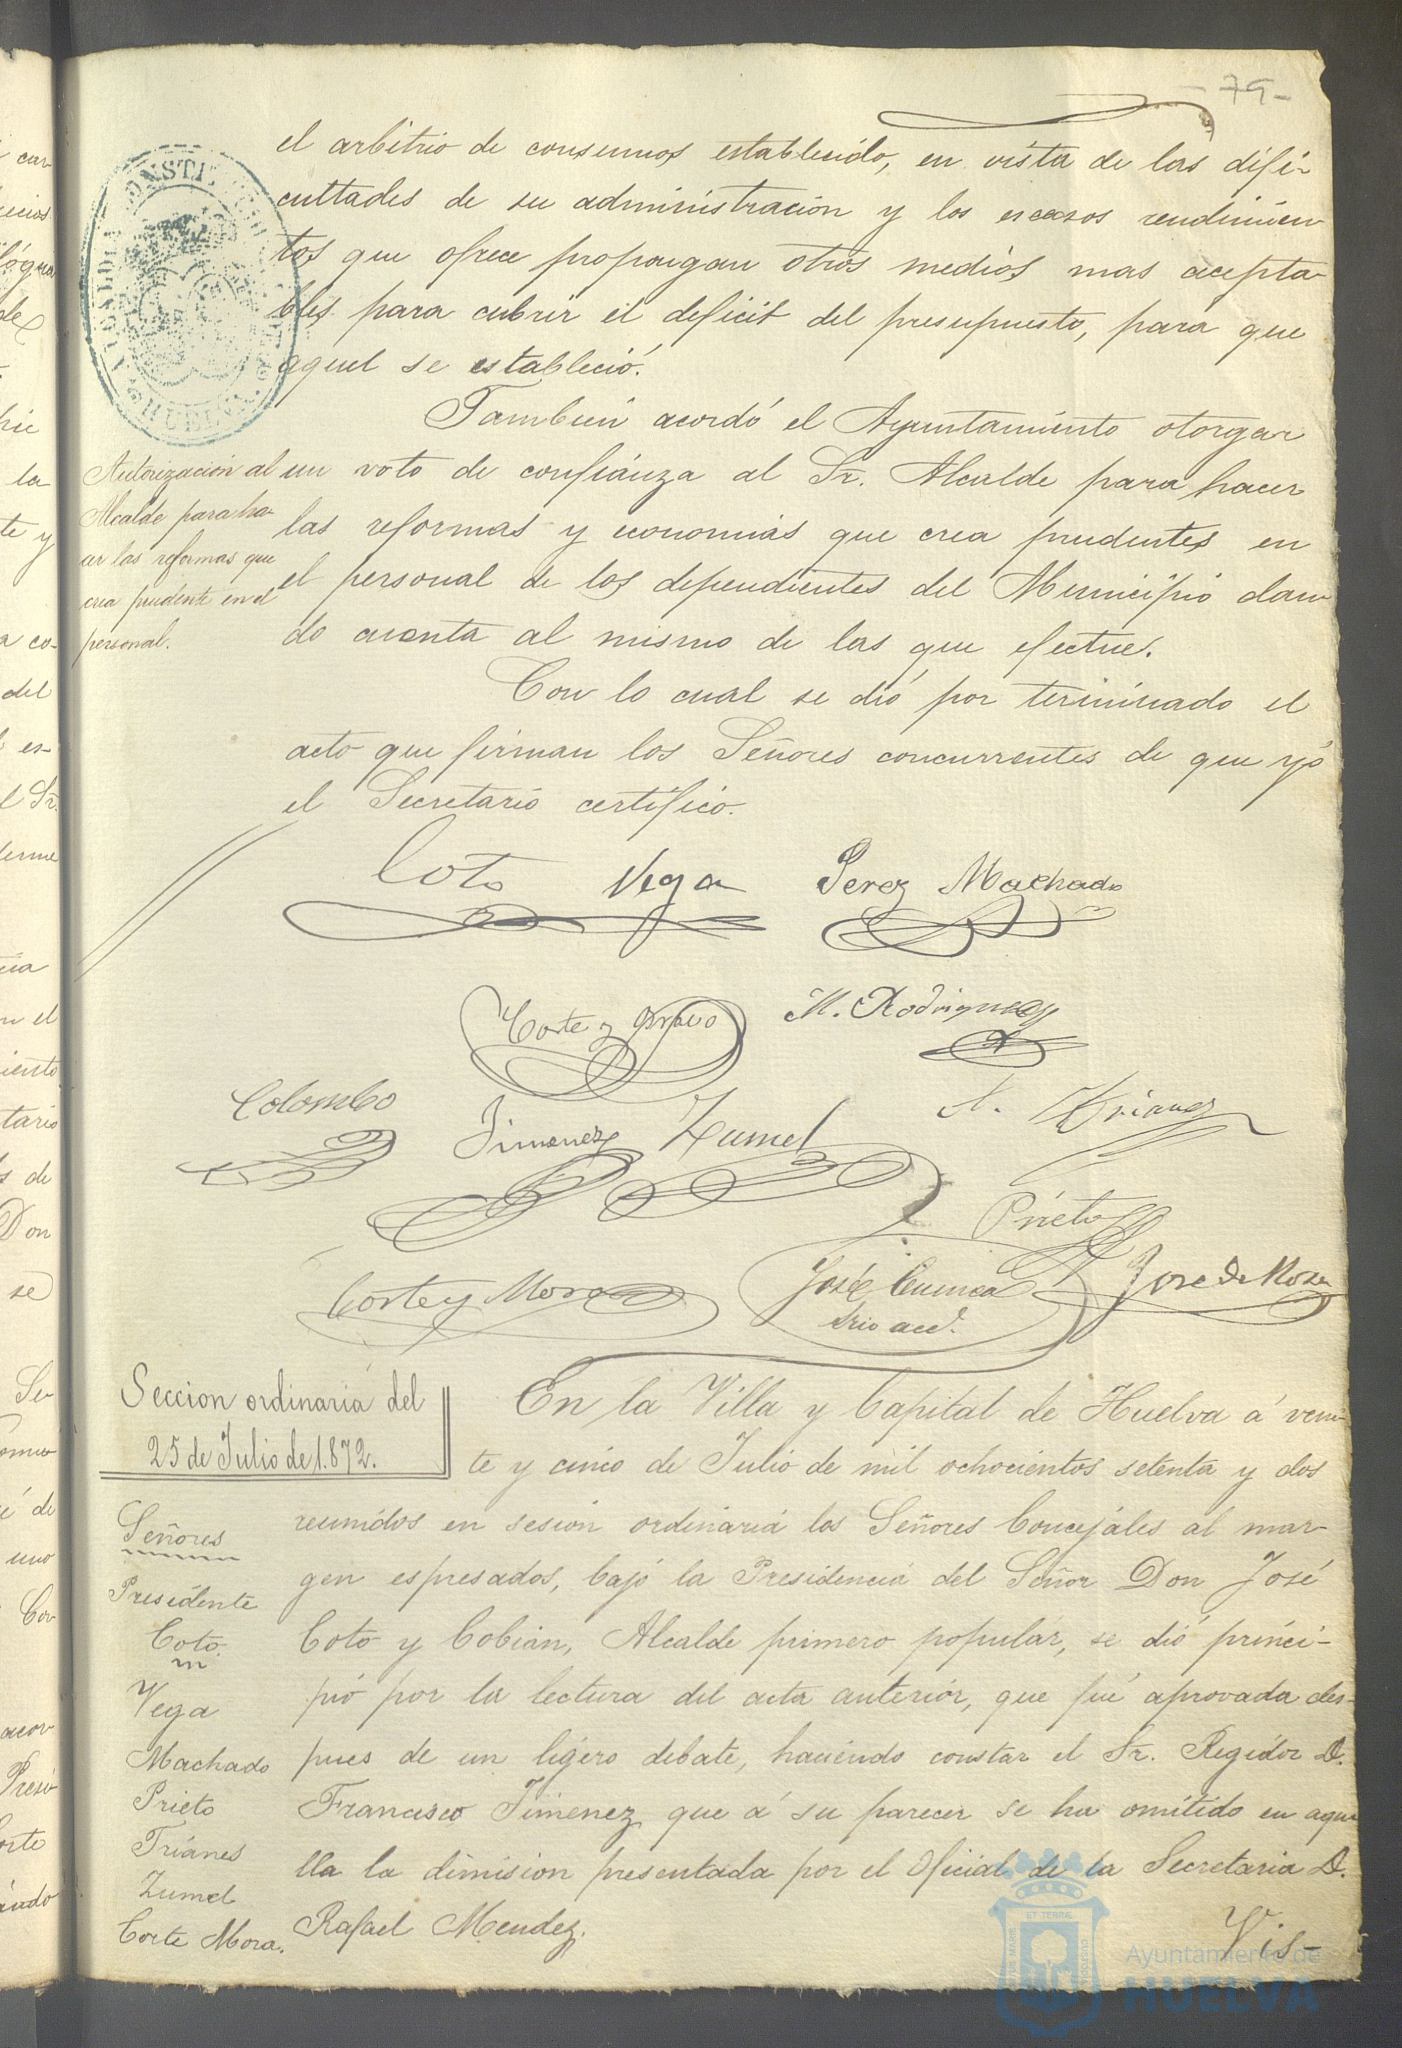 -79-
el arbitrio de consumos establecido, en vista de las difi-
cultades de su administración y los escasos rendimien
tos que ofrece propongan otros medios mas acepta-
bles para cubrir el deficit del presupuesto, para que
aquel se estableció.
Tambien acordó el Ayuntamiento otorgar
Autorización al
Alcalde para ha-
cer las reformas que
crea prudente en el
personal.
un voto de confianza al Sr. Alcalde para hacer
las reformas y economias que crea prudentes en
el personal de los dependientes del Municipio dan
do cuenta al mismo de las que efectue.
Con lo cual se dió por terminado el
acto que firman los Señores concurrentes de que yo
el Secretario certifico.
Coto Vega Perez Machado
Corte y Bravo M. Rodriguez
Colombo Jimenez Zumel A. Trianes
Prieto
Corte y Mora José Cuenca José de Mora
Srio accl.
Seccion ordinaria del
25 de Julio de 1.872.
En la Villa y Capital de Huelva á vein-
te y cinco de Julio de mil ochocientos setenta y dos
Señores
Presidente
Coto
Vega
Machado
Prieto
Trianes
Zumel
Corte Mora.
reunidos en sesion ordinaria los Señores Concejales al mar-
gen espresados, bajo la Presidencia del Señor Don José
Coto y Cobian, Alcalde primero popular, se dió princi-
pio por la lectura del acta anterior, que fué aprovada des-
pues de un ligero debate, haciendo constar el Sr. Regidor D.
Francisco Jimenez que á su parecer se ha omitido en aque
lla la dimision presentada por el Oficial de la Secretaria D.
Rafael Mendez.
Vis-
Ayuntamiento de
HUELVA